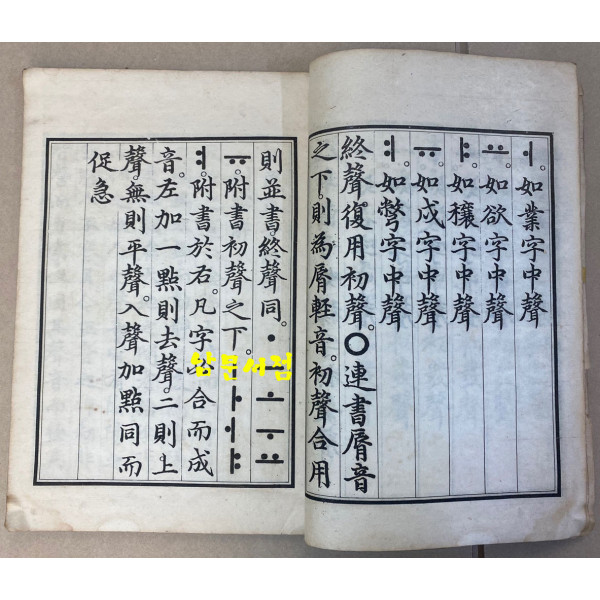 ㅓ。如業字中聲
ㅛ。如欲字中聲
ㅑ。如穰字中聲
ㅠ。如戌字中聲
ㅕ。如彆字中聲
終聲。復用初聲。〇連書脣音
之下。則為脣輕音。初聲合用
則並書。終聲同。ㆍㅡㅗㅜㅛ
ㅠ。附書初聲之下。ㅣㅏㅓㅑ
ㅕ。附書於右。凡字必合而成
音。左加一點則去聲。二則上
聲。無則平聲。入聲加點同而
促急
남문서점